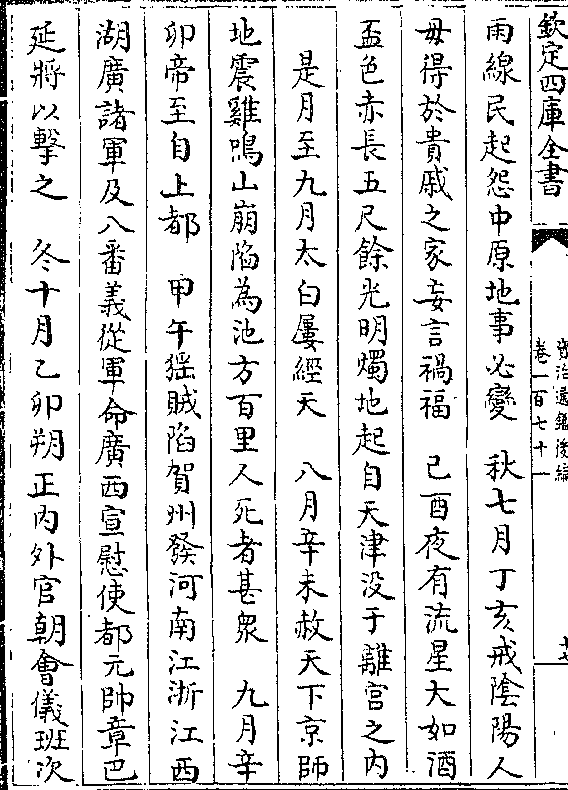 欽定四庫全書
資治通鑑後編
卷一百七十一
十七
雨線民起怨中原地事必變　秋七月丁亥戒陰陽人
毋得於貴戚之家妄言禍福　己酉夜有流星大如酒
盃色赤長五尺餘光明燭地起自天津沒于離宮之内
是月至九月太白屢經天　八月辛未赦天下京師
地震雞鳴山崩陷為池方百里人死者甚衆　九月辛
卯帝至自上都　甲午猺賊陷賀州發河南江浙江西
湖廣諸軍及八番義從軍命廣西宣慰使都元帥章巴
延將以擊之　冬十月乙卯朔正内外官朝會儀班次